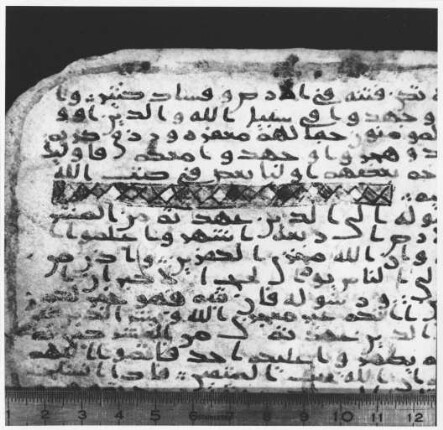 تكن فتنه في الارض وفساد كبير وا
وجهدوا في سبيل الله والذين اوو
المومنون حقا لهم مغفره ورزق كريم
وهجروا وجهدوا معكم فاوليك
بعضهم اولى ببعض في كتب الله
الى الذين عهدتم من
اربعه اشهر واعلموا ا
وان الله مخزي الكفرين واذن من
الناس يوم الحج الاكبر ان ا
ورسوله فان تبتم فهو خير لكم
انكم غير معجزي الله وبشر الذين
الذين عهدتم من المشركين
يظهروا عليكم احدا فاتموا اليهم
ان الله يحب المتقين فاذا انسلخ
1 2 3 4 5 6 7 8 9 10 11 12